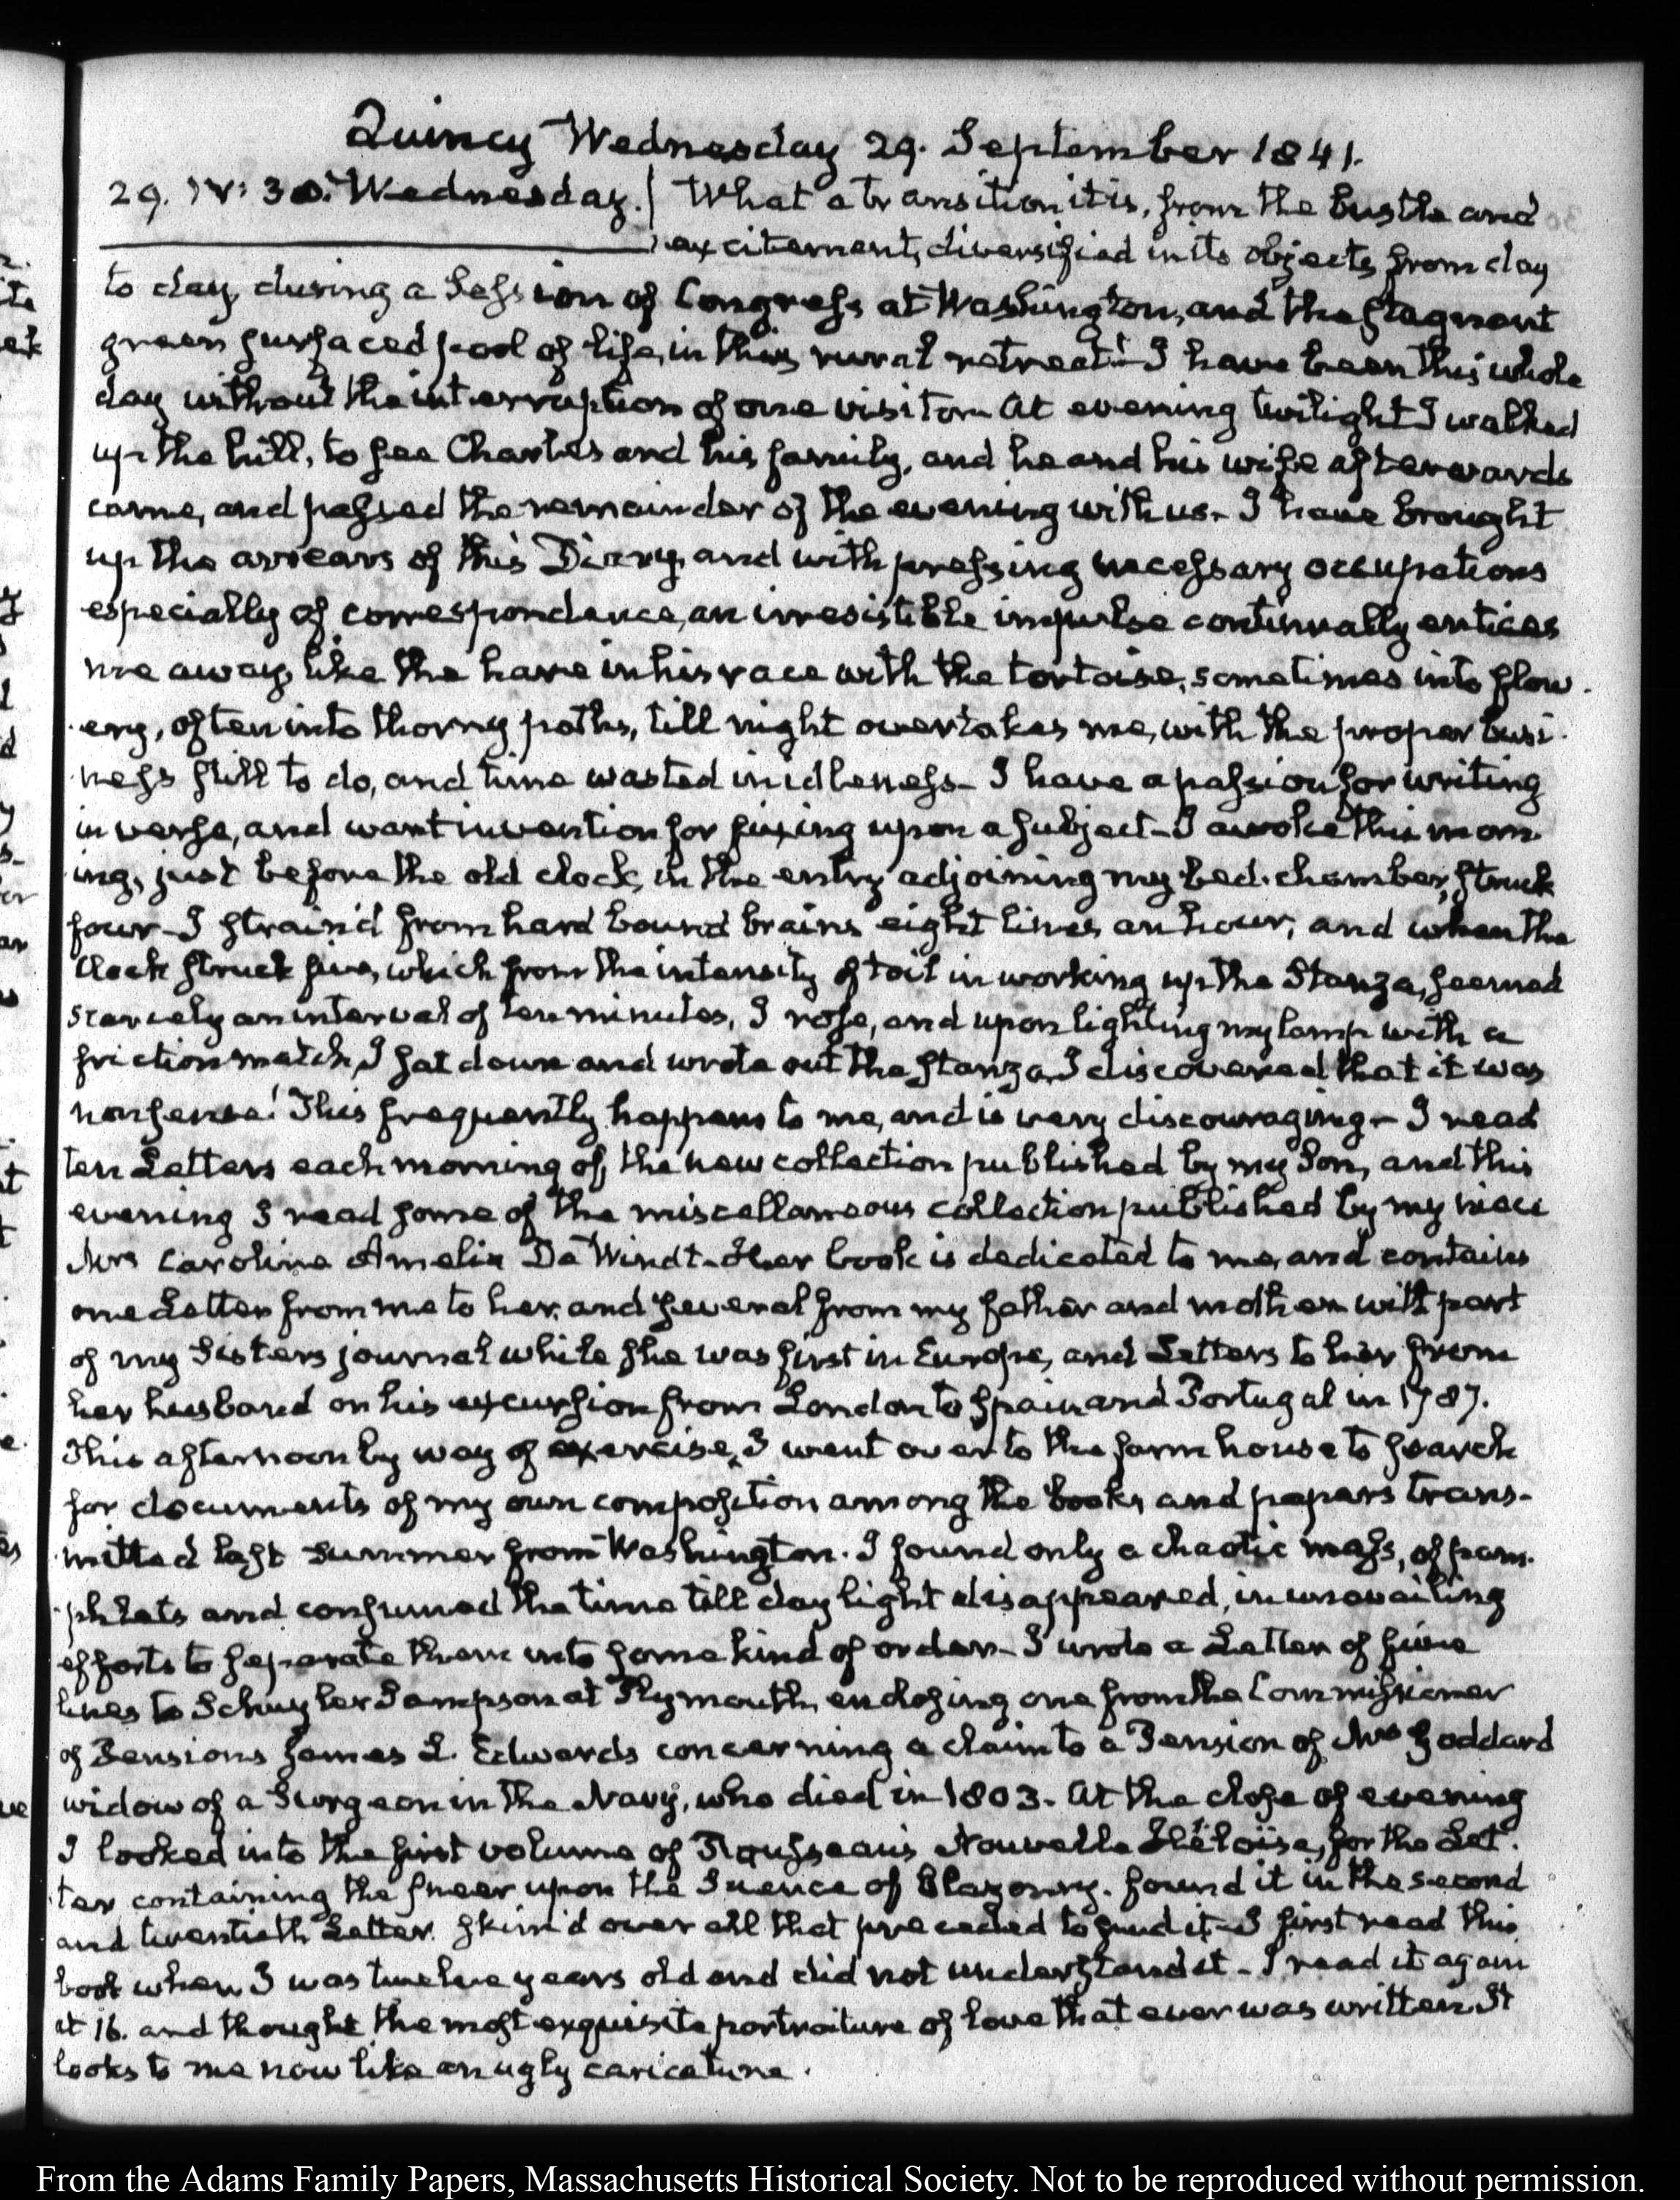 Quincy Wednesday 29. September 1841.
29. IV: 30. Wednesday. | What a transition it is, from the bustle and
excitement, diversified in its objects from day
to day, during a Session of Congress at Washington, and the stagnant
green surfaced pool of life, in this rural retreat! I have been this whole
day without the interruption of one visitor. At evening twilight I walked
up the hill, to see Charles and his family, and he and his wife afterwards
came, and passed the remainder of the evening with us. I have brought
up the arrears of this Diary, and with pressing necessary occupations
especially of correspondence, an irresistible impulse continually entices
me away, like the hare in his race with the tortoise, sometimes into flow-
ery, often into thorny paths, till night overtakes me, with the proper busi-
ness still to do, and time wasted in idleness- I have a passion for writing
in verse, and want invention for fixing upon a subject- I awoke this morn-
ing, just before the old clock, in the entry adjoining my bed-chamber, struck
four- I strain'd from hard bound brains eight lines an hour, and when the
clock struck five, which from the intensity of toil in working up the Stanza, seemed
scarcely an interval of ten minutes, I rose, and upon lighting my lamp with a
friction match, I sat down and wrote out the stanza, I discovered that it was
nonsense! This frequently happens to me, and is very discouraging- I read
ten Letters each morning of the new collection published by my Son, and this
evening I read some of the miscellaneous collection published by my niece
Mrs Caroline Amelia De Windt- Her book is dedicated to me, and contains
one Letter from me to her, and several from my father and mother with part
of my Sisters journal while she was first in Europe, and Letters to her from
her husband on his excursion from London to Spain and Portugal in 1787.
This afternoon by way of exercise, I went over to the farm house to search
for documents of my own composition among the books and papers trans-
mitted last summer from Washington. I found only a chaotic mass, of pam-
phlets and consumed the time till day light disappeared, in unavailing
efforts to separate them into some kind of order- I wrote a Letter of five
lines to Schuyler Sampson at Plymouth, enclosing one from the Commissioner
of Pensions James L. Edwards concerning a claim to a Pension of Mrs Goddard
widow of a Surgeon in the Navy, who died in 1803. At the close of evening
I looked into the first volume of Rousseau's Nouvelle Héloïse, for the Let-
ter containing the sneer upon the Science of Blazonry. found it in the second
and twentieth Letter. skim'd over all that preceded to find it- I first read this
book when I was twelve years old and did not understand it- I read it again
at 16. and thought the most exquisite portraiture of love that ever was written. It
looks to me now like an ugly caricature.
From the Adams Family Papers, Massachusetts Historical Society. Not to be reproduced without permission.